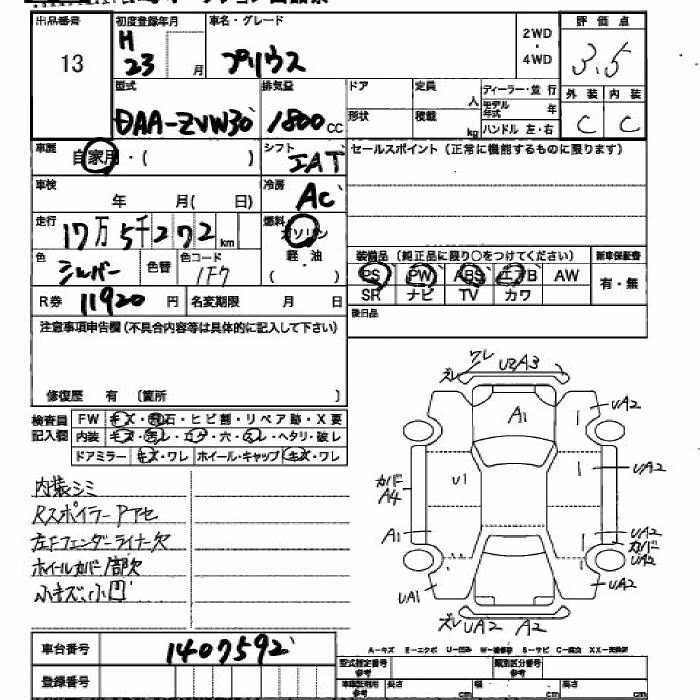 出品番号 初度登録年月 車名・グレード 評価点
13 H 23 月 プリウス 2WD・4WD 3.5
型式 排気量 ドア 定員 人 ディーラー・並行 外装 内装
DAA-ZVW30 1800cc 形状 積載 kg モデル年式 年 C C
ハンドル 左・右
車歴 自家用・( ) シフト IAT セールスポイント(正常に機能するものに限ります)
車検 年 月( 日) 冷房 AC
走行 17万5千272km 燃料 ガソリン
軽・油
( )
色 シルバー 色替 色コード 1F7
装備品(純正品に限り○をつけてください) 新車保証書
PS PW ABS エアB AW 有・無
SR ナビ TV カワ
R券 11920円 名変期限 月 日
後日品
注意事項申告欄(不具合内容等は具体的に記入して下さい)
修復歴 有 〔箇所 〕
検査員記入欄 FW キズ・飛石・ヒビ割・リペア跡・X要
内装 キズ・汚レ・コゲ・穴・スレ・ヘタリ・破レ
ドアミラー キズ・ワレ ホイール・キャップ キズ・ワレ
内装シミ
Rスポイラーアセ
左Fフェンダーライナー欠
ホイールカバー1部欠
小キズ、小凹
ワレ
ズレ U2A3
A1
UA2
U1
カバド A4
UA2
A1
UA2
カバド UA2
UA1
UA2
ズレ UA2 A2
車台番号 1407592
登録番号
A-キズ E-エクボ U-凹み W-補修跡 S-サビ C-腐食 XX-交換済
型式指定番号 参考 類別区分番号 参考
車検証利用 参考 長さ cm 幅 cm 高さ cm